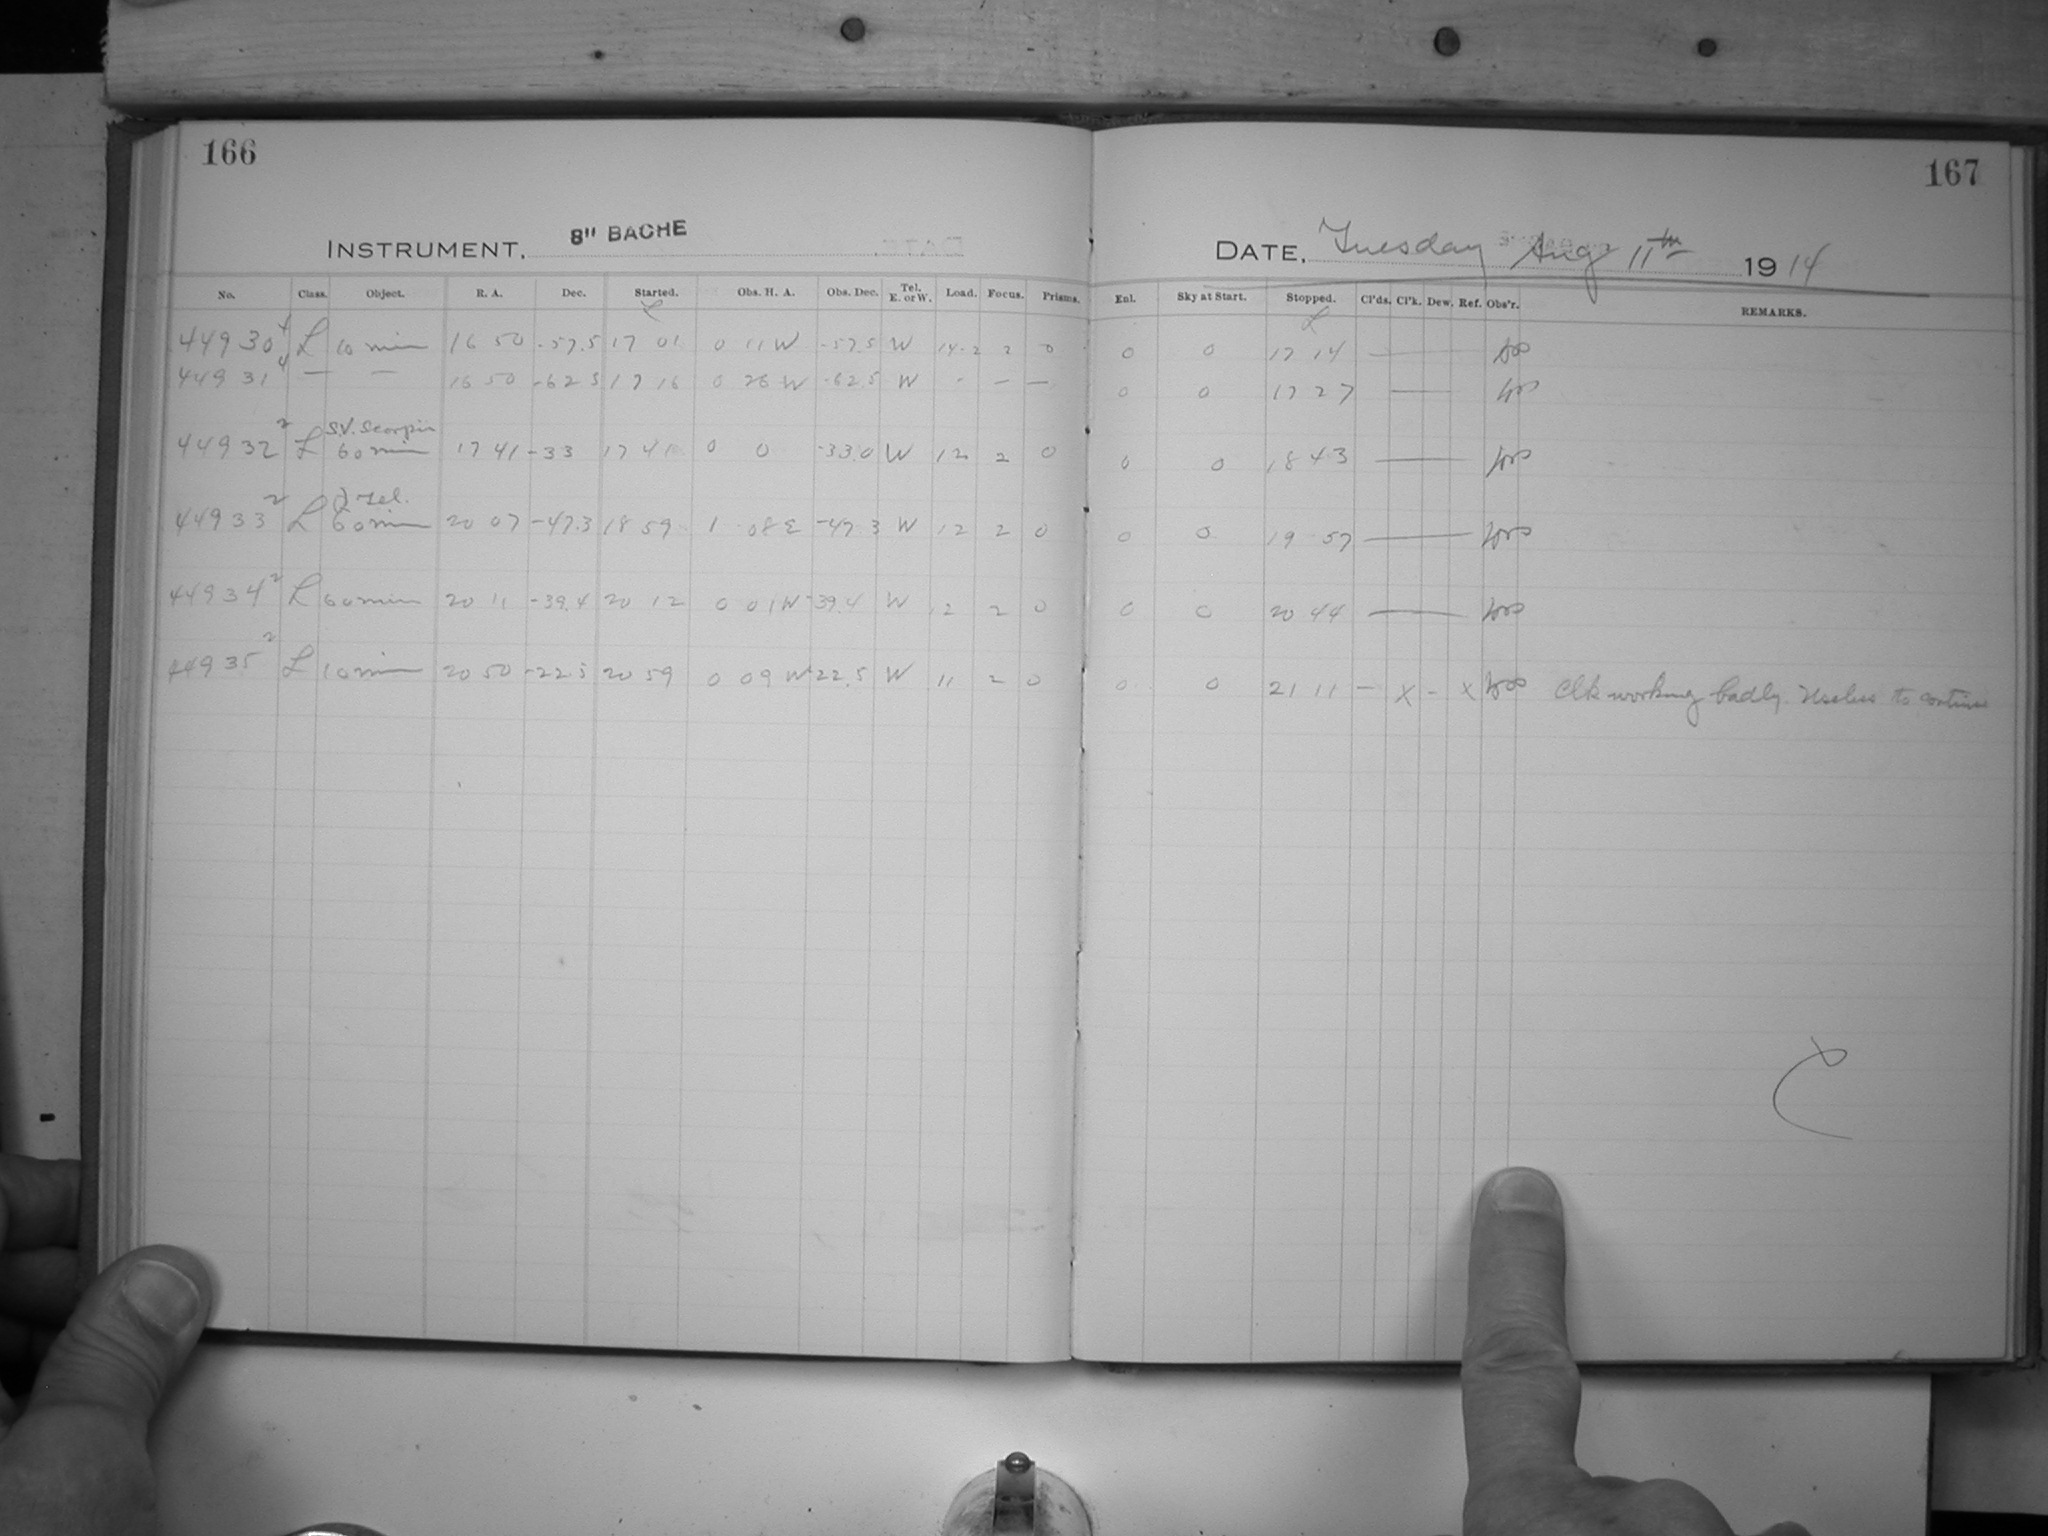 166
INSTRUMENT, 8" BACHE
No. Class. Object. R. A. Dec. Started. Obs. H. A. Obs. Dec. Tel. E. or W. Load. Focus. Prisms.
44930 4 L 10 min 16 50 -57.5 17 01 0 11 W -57.5 W 14.2 2 0
44931 4 — — 16 50 -62.5 17 16 0 26 W -62.5 W - — —
S.V. Scorpii
44932 2 L 60 min 17 41 -33 17 41 0 0 -33.0 W 12 2 0
Tel.
44933 2 L 60 min 20 07 -47.3 18 59 1 08 E -47.3 W 12 2 0
44934 2 L 60 min 20 11 -39.4 20 12 0 01 W -39.4 W 12 2 0
44935 2 L 10 min 20 50 -22.5 20 59 0 09 W -22.5 W 11 2 0
167
DATE, Tuesday Aug 11th 1914
Enl. Sky at Start. Stopped. Cl'ds. Cl'k. Dew. Ref. Obs'r. REMARKS.
0 0 17 14 —
0 0 17 27 —
0 0 18 43 —
0 0 19 57 —
0 0 20 44 —
0 0 21 11 — X - X Clk working badly. Useless to continue